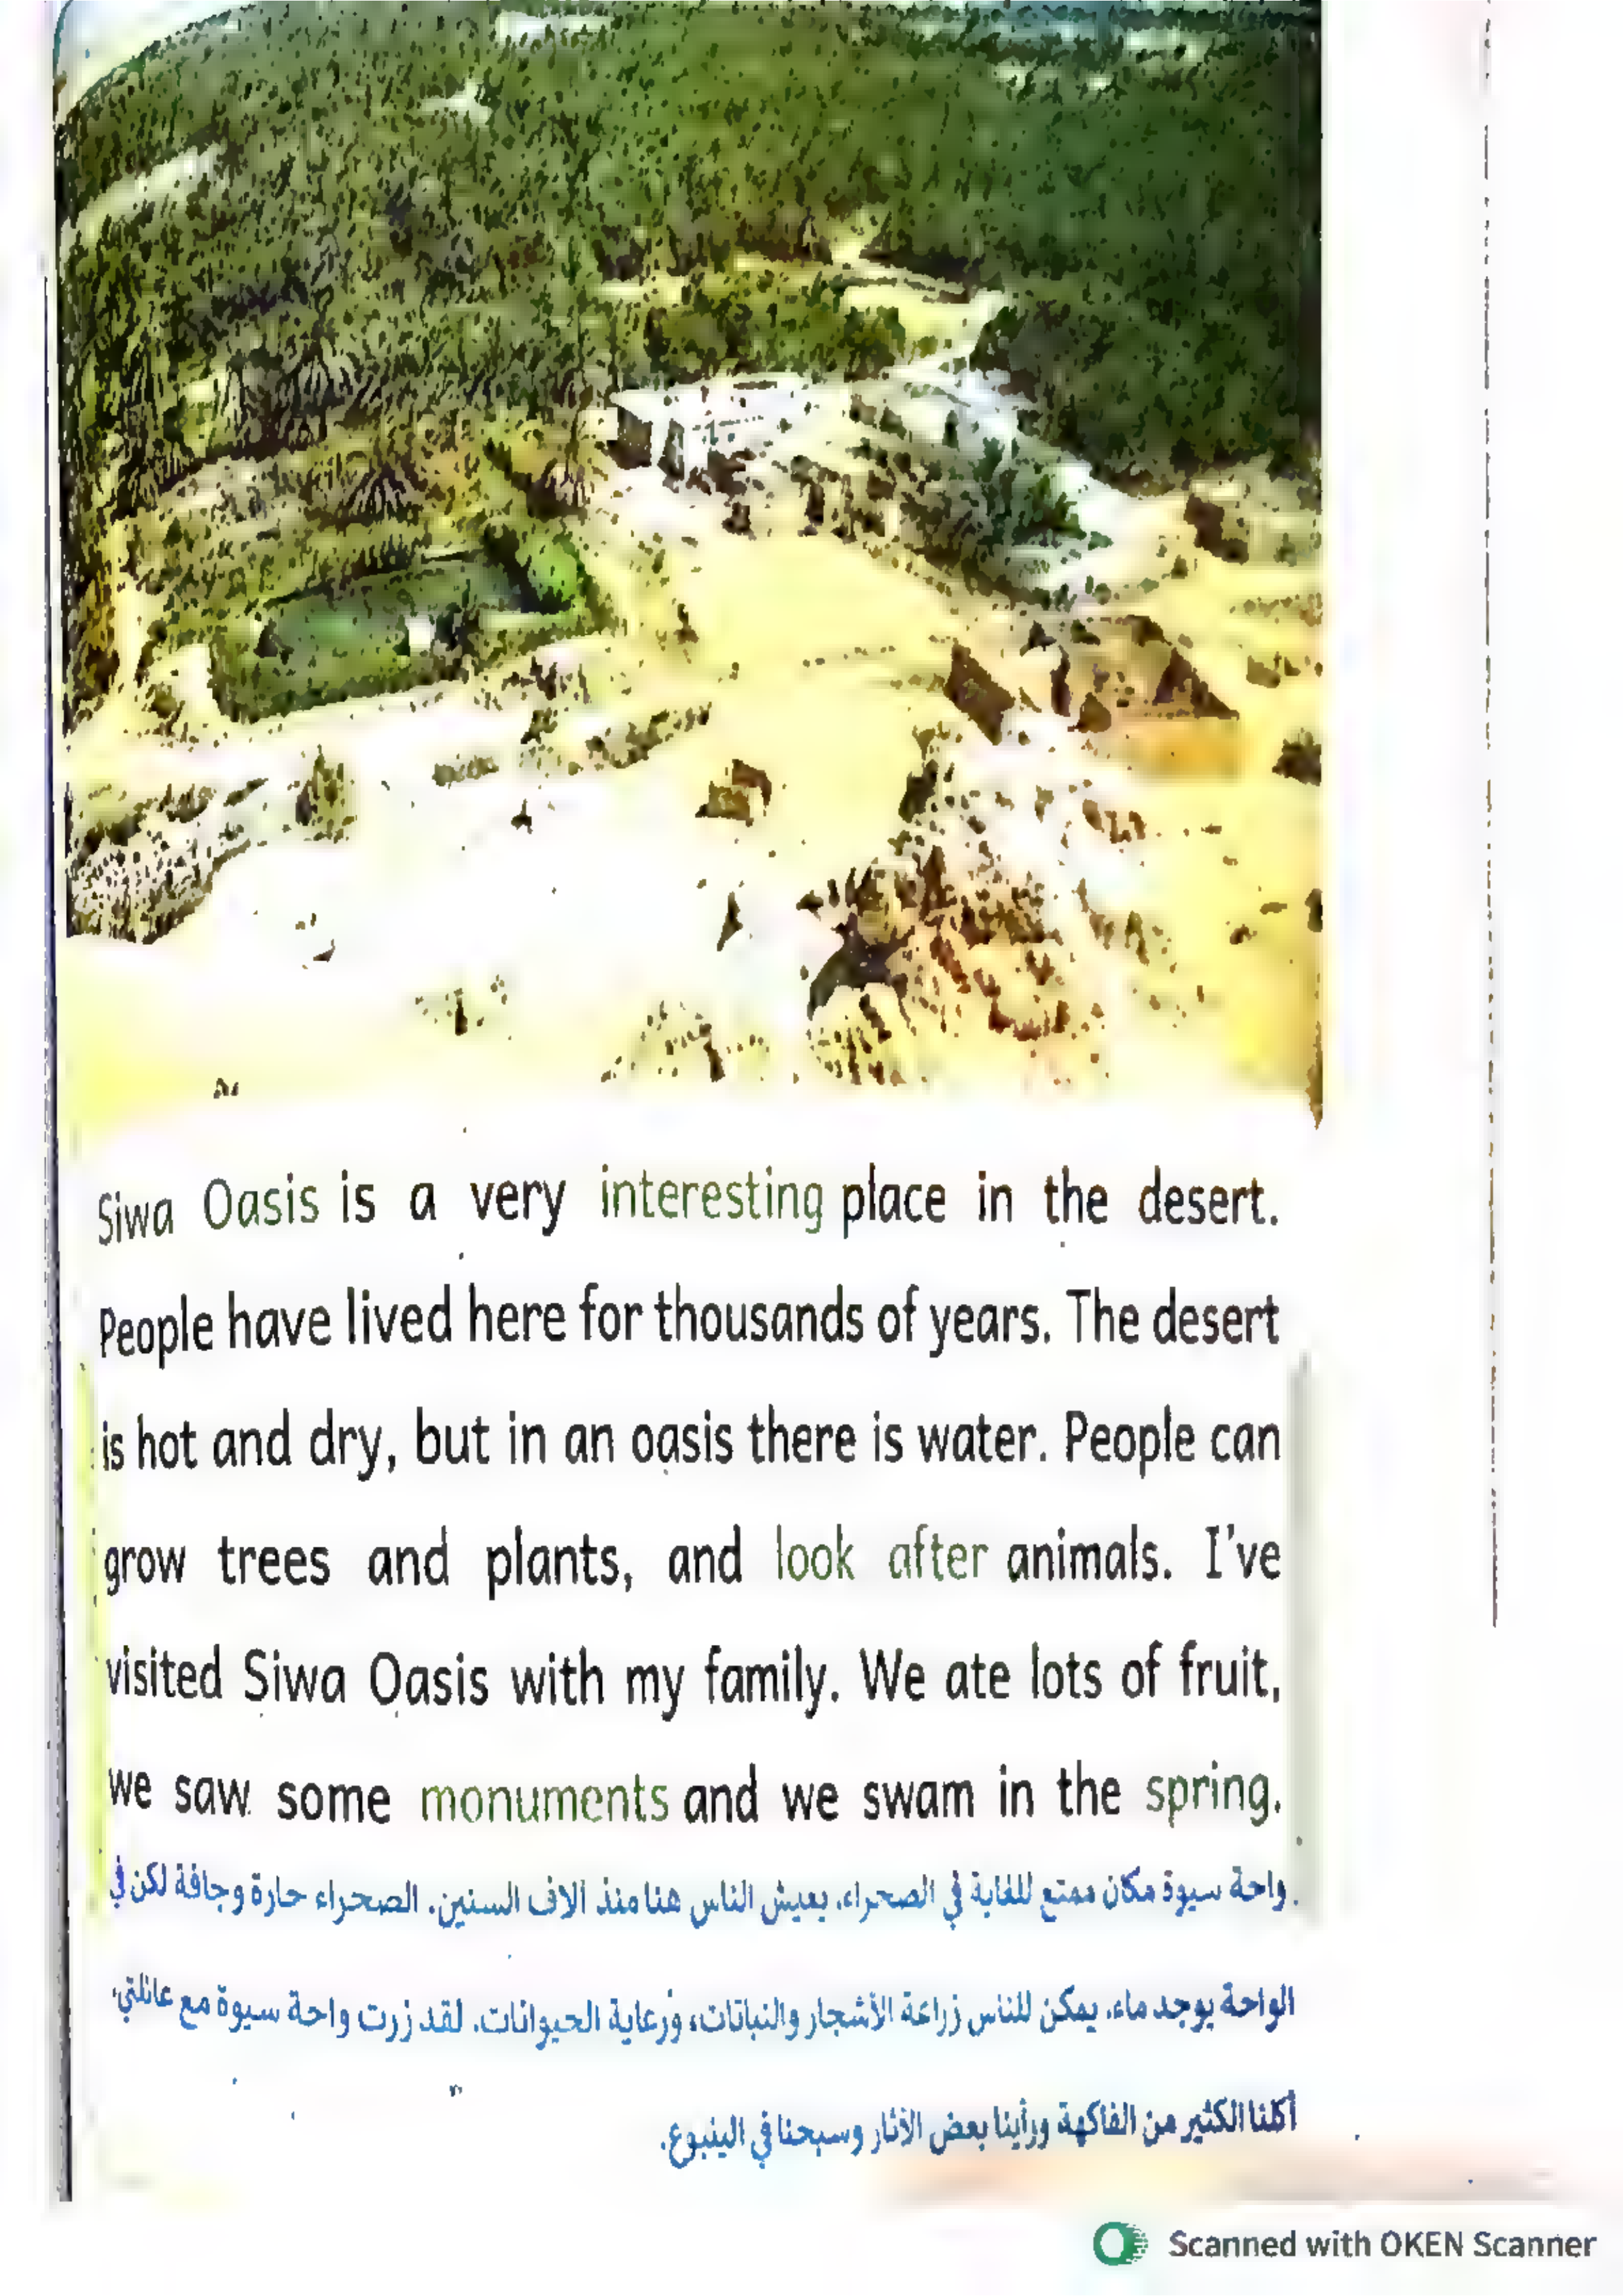 Siwa Oasis is a very interesting place in the desert.
People have lived here for thousands of years. The desert
is hot and dry, but in an oasis there is water. People can
grow trees and plants, and look after animals. I've
visited Siwa Oasis with my family. We ate lots of fruit,
we saw some monuments and we swam in the spring.
واحة سيوة مكان ممتع للغاية في الصحراء. يعيش الناس هنا منذ آلاف السنين. الصحراء حارة وجافة لكن في
الواحة يوجد ماء. يمكن للناس زراعة الأشجار والنباتات، ورعاية الحيوانات. لقد زرت واحة سيوة مع عائلتي،
أكلنا الكثير من الفاكهة ورأينا بعض الآثار وسبحنا في الينبوع.
Scanned with OKEN Scanner